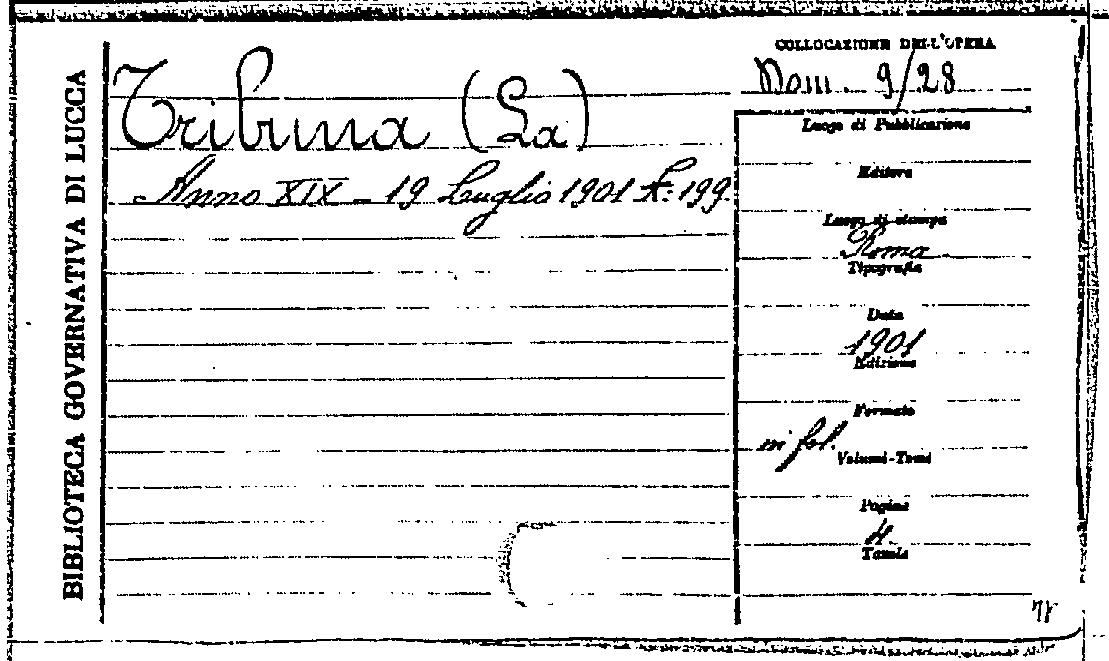 BIBLIOTECA GOVERNATIVA DI LUCCA
Tribuna (La)
Anno XIX - 19 Luglio 1901 N.º 199.
COLLOCAZIONE DELL'OPERA
Dom. 9/28
Luogo di Pubblicazione
Editore
Luogo di stampa
Roma
Tipografia
Data
1901
Edizione
Formato
in fol.
Volumi-Tomi
Pagine
4
Tavole